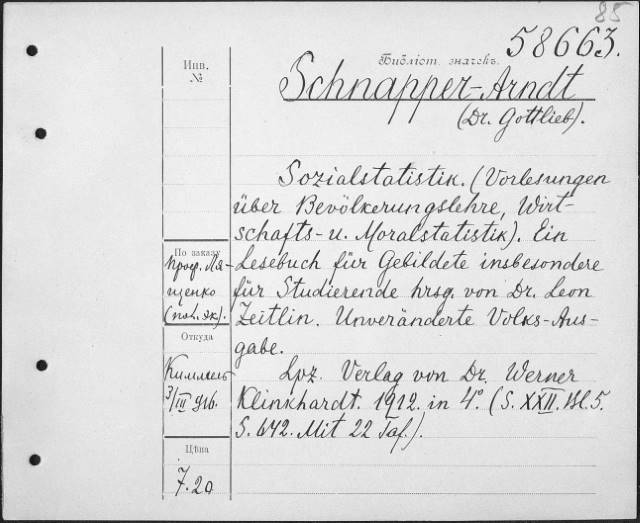 85
58663.
Библіот. значекъ.
Schnapper-Arndt
(Dr. Gottlieb).
Инв.
№
Sozialstatistik. (Vorlesungen
über Bevölkerungslehre, Wirt-
schafts- u. Moralstatistik). Ein
Lesebuch für Gebildete insbesondere
für Studierende hrsg. von Dr. Leon
Zeitlin. Unveränderte Volks-Aus-
gabe.
Lpz. Verlag von Dr. Werner
Klinkhardt. 1912. in 4°. (S. XXII. Bl. 5.
S. 642. Mit 22 Taf.).
По заказу
проф. Ля-
щенко
(пол. эк).
Откуда
Киммель
3/III
Цѣна
7.20